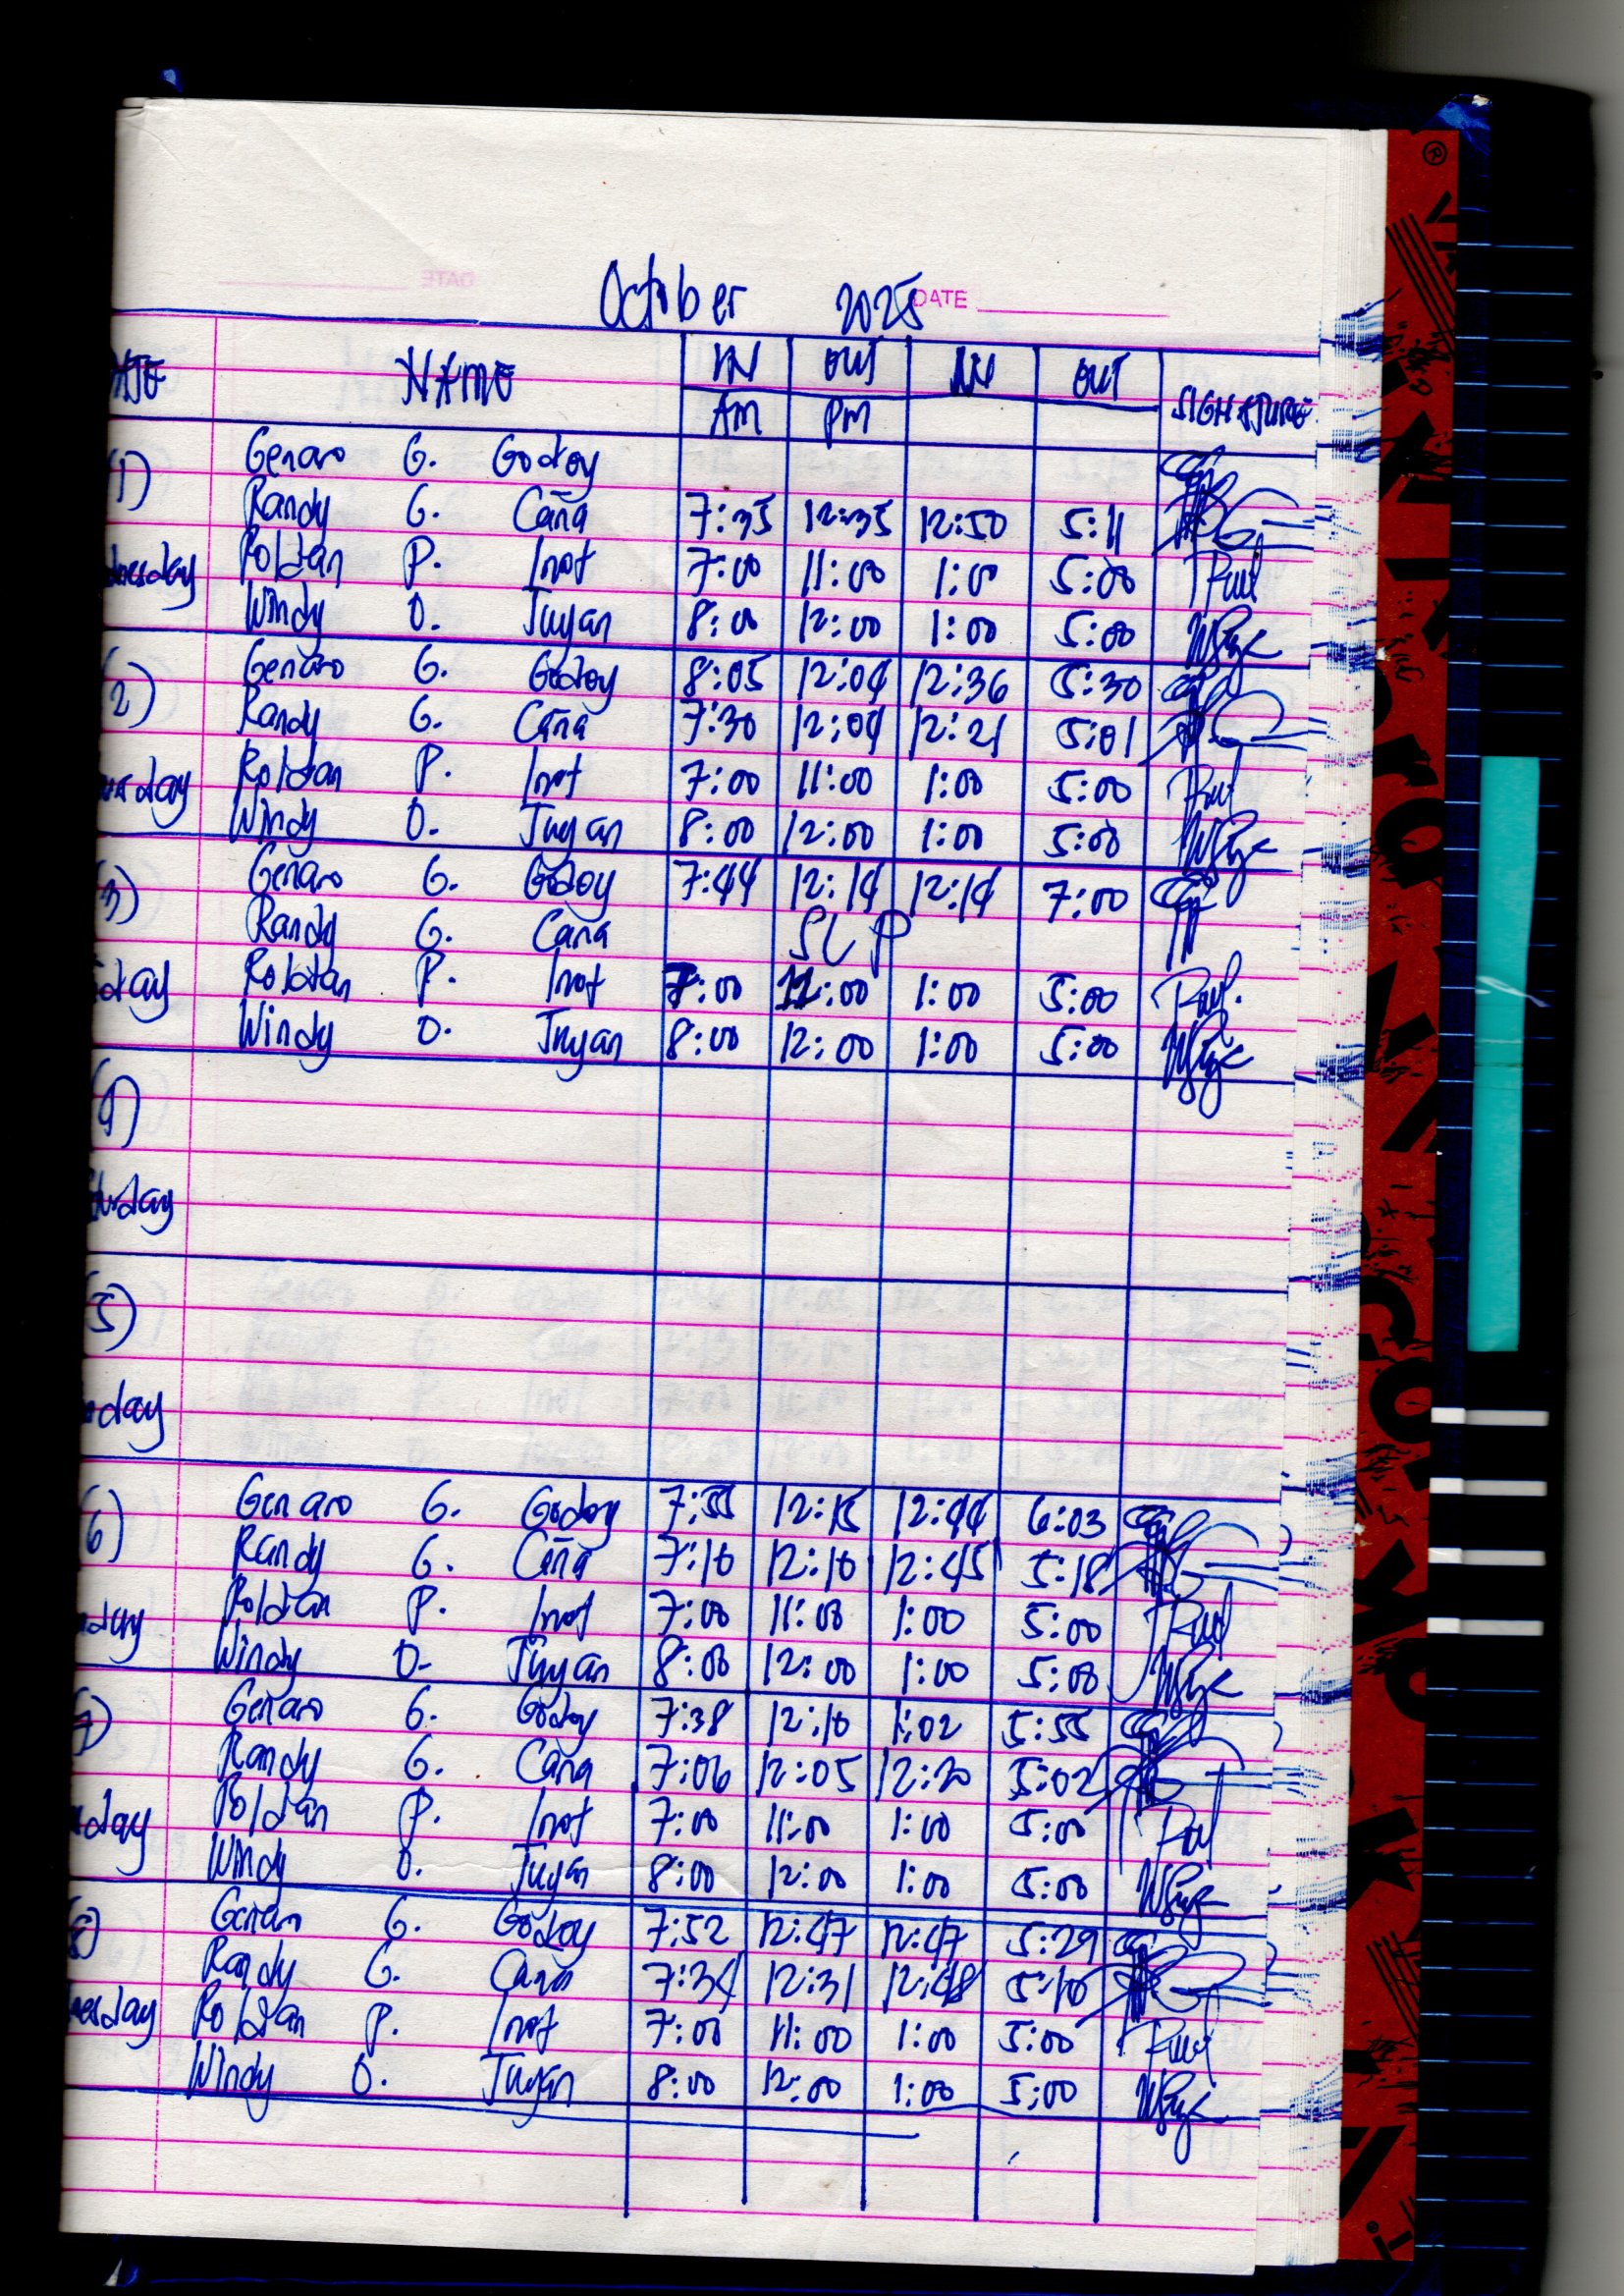 DATE
October 2025 DATE
NAME IN OUT IN OUT SIGNATURE
AM PM
(1) Genaro G. Godoy
Randy G. Caña 7:35 12:35 12:50 5:11
Roldan P. Inot 7:00 11:00 1:00 5:00
Windy O. Juyan 8:00 12:00 1:00 5:00
(2) Genaro G. Godoy 8:05 12:04 12:36 5:30
Randy G. Caña 7:30 12:04 12:21 5:01
Roldan P. Inot 7:00 11:00 1:00 5:00
Windy O. Juyan 8:00 12:00 1:00 5:00
3) Genaro G. Godoy 7:44 12:14 12:14 7:00
Randy G. Caña SLP
Roldan P. Inot 7:00 11:00 1:00 5:00
Windy O. Juyan 8:00 12:00 1:00 5:00
4)
turday
5)
day
6) Genaro G. Godoy 7:55 12:15 12:44 6:03
Randy G. Caña 7:10 12:10 12:45 5:18
day Roldan P. Inot 7:00 11:00 1:00 5:00
Windy O. Juyan 8:00 12:00 1:00 5:00
7) Genaro G. Godoy 7:38 12:10 1:02 5:55
Randy G. Caña 7:06 12:05 12:20 5:02
day Roldan P. Inot 7:00 11:00 1:00 5:00
Windy O. Juyan 8:00 12:00 1:00 5:00
8) Genaro G. Godoy 7:52 12:47 12:47 5:29
Randy G. Caña 7:34 12:31 12:48 5:10
esday Roldan P. Inot 7:00 11:00 1:00 5:00
Windy O. Juyan 8:00 12:00 1:00 5:00